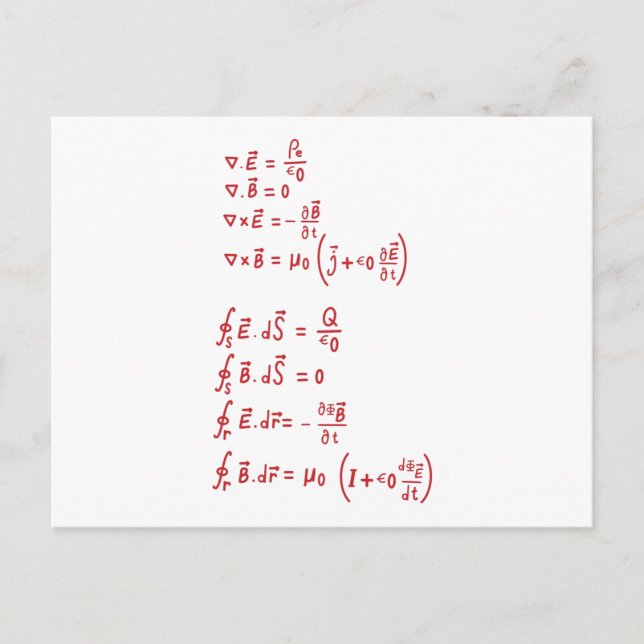 ∇.E⃗ = ρe/ϵ0
∇.B⃗ = 0
∇×E⃗ = -∂B⃗/∂t
∇×B⃗ = μ0 (j⃗ + ϵ0 ∂E⃗/∂t)
∮s E⃗.dS⃗ = Q/ϵ0
∮s B⃗.dS⃗ = 0
∮r E⃗.dr⃗ = - ∂ΦB⃗/∂t
∮r B⃗.dr⃗ = μ0 (I + ϵ0 dΦE⃗/dt)